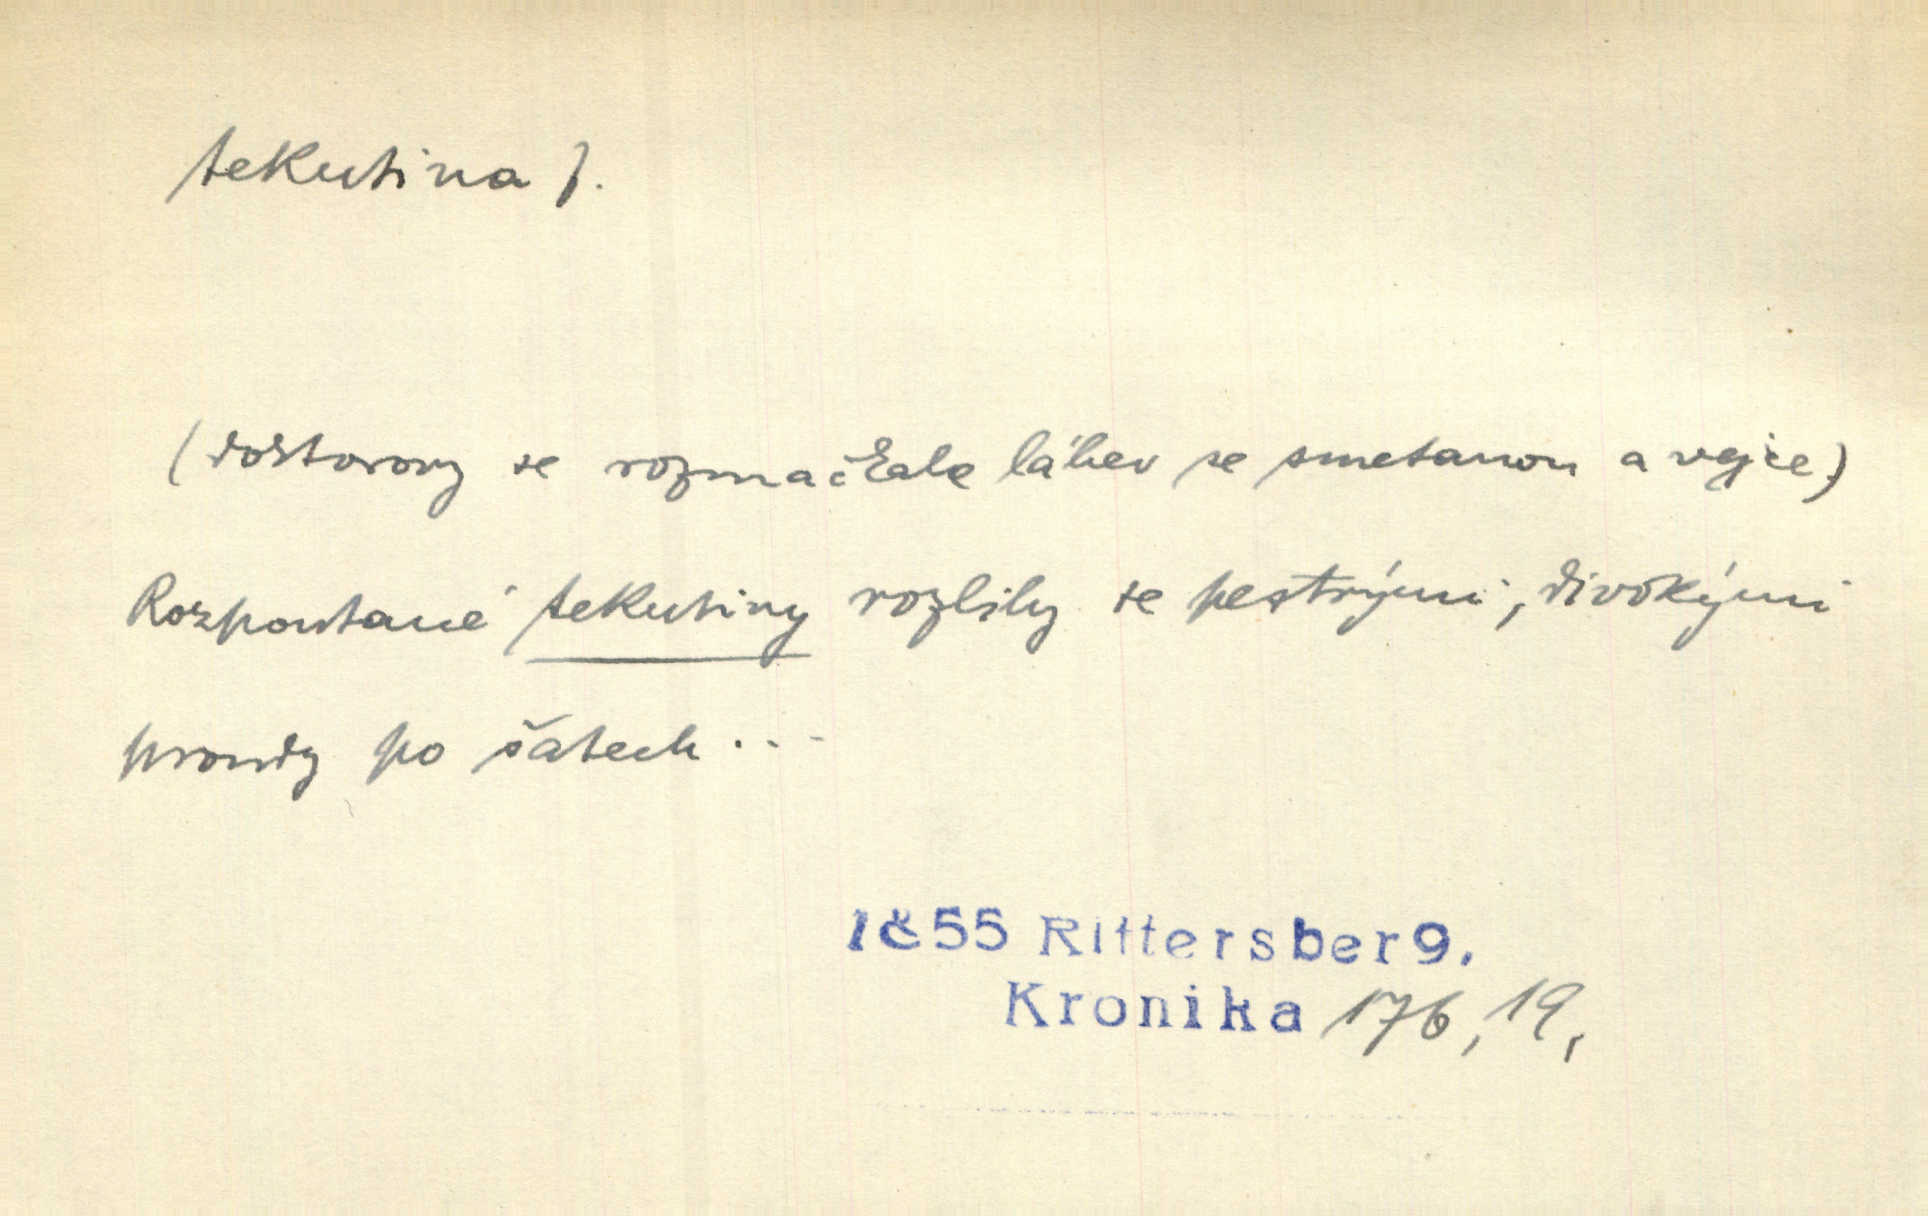 tekutina f.
(doktorovy se rozmačkala láhev se smetanou a vejce)
Rozpoutané tekutiny rozlily se pestrými, divokými
proudy po šatech...
1č55 Rittersberg.
Kronika 176, 19,